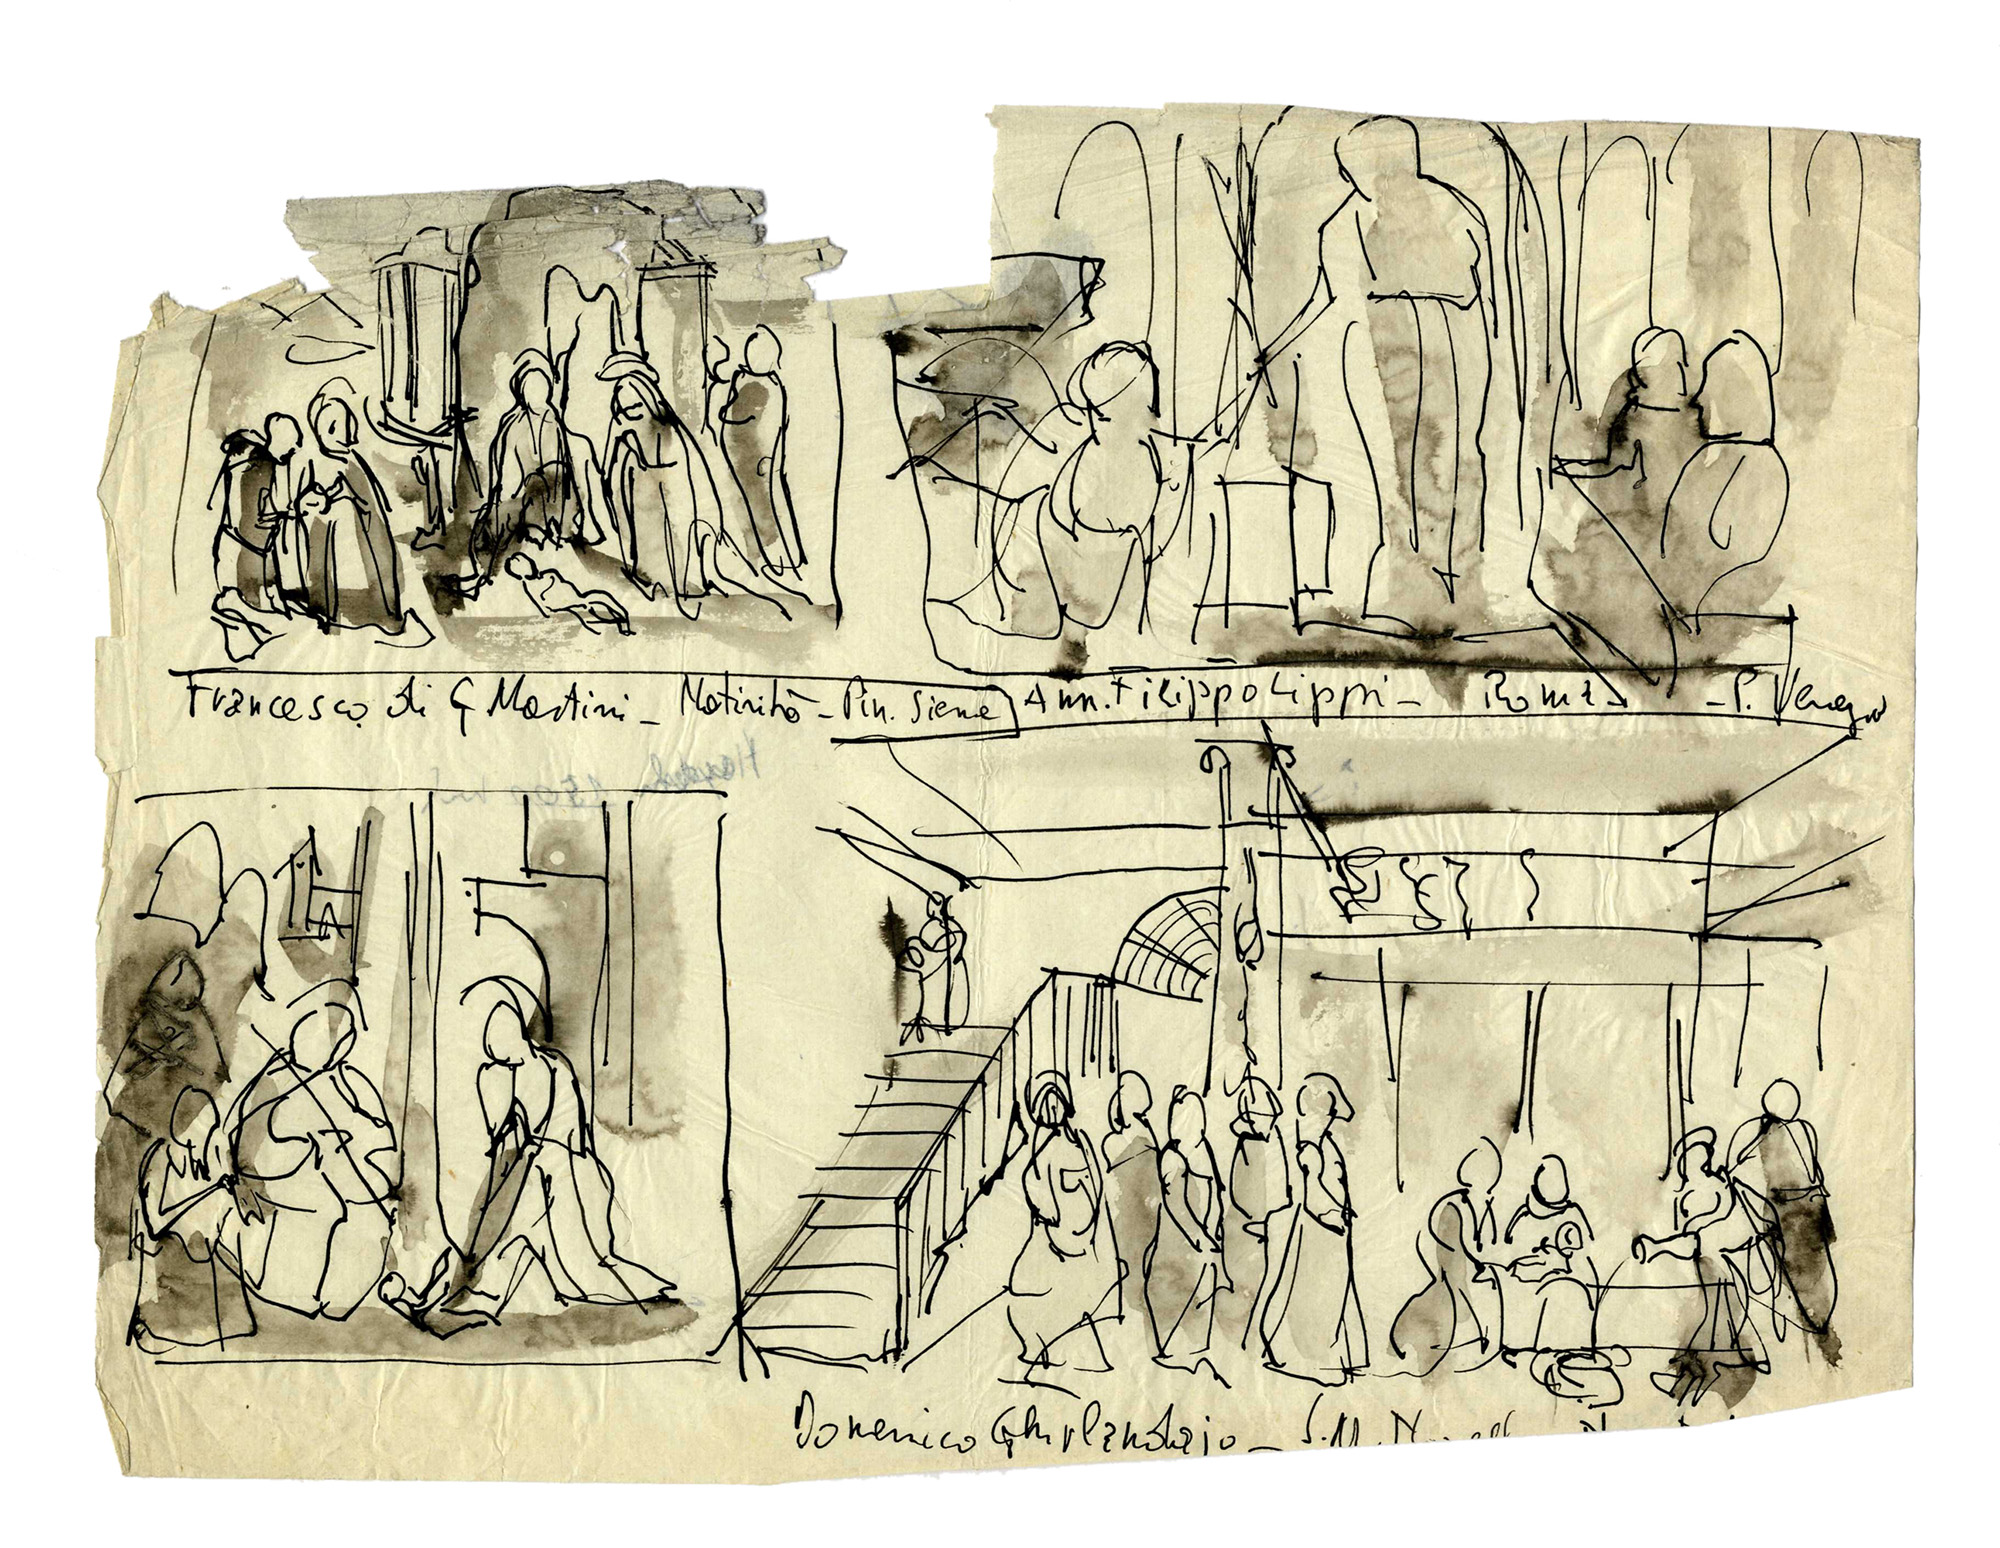 Francesco di G Martini - Natività - Pin. Siena
Ann. Filippo Lippi - Roma - P. Venezia
Domenico Ghirlandajo - S. M. Novella